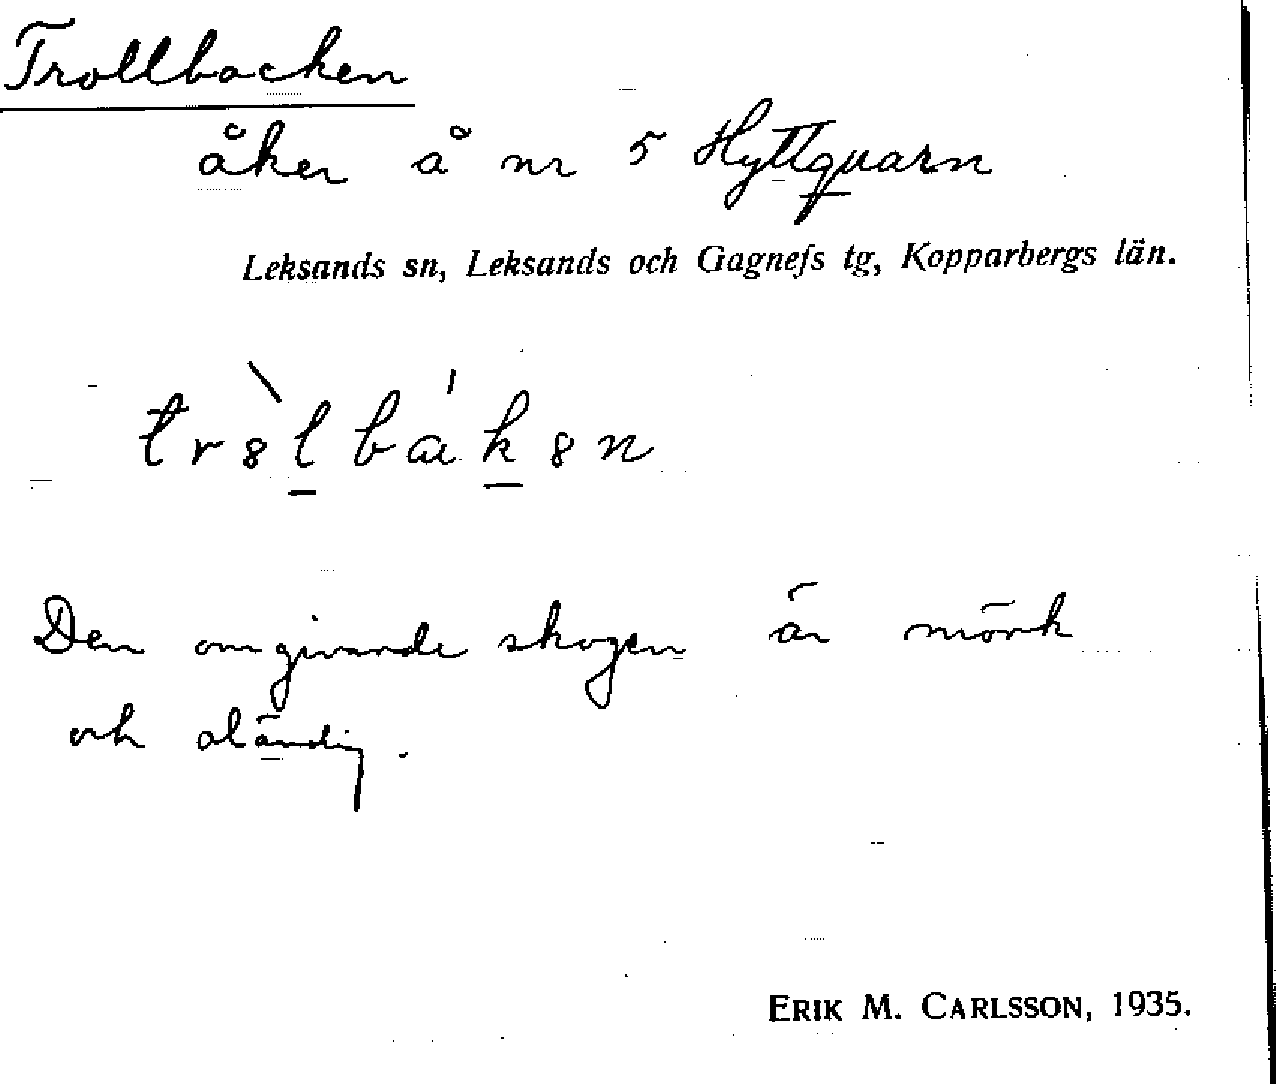 Trollbacken
åker å nr 5 Hyttquarn
Leksands sn, Leksands och Gagnefs tg, Kopparbergs län.
Den omgivande skogen är mörk
och oländig.
ERIK M. CARLSSON, 1935.